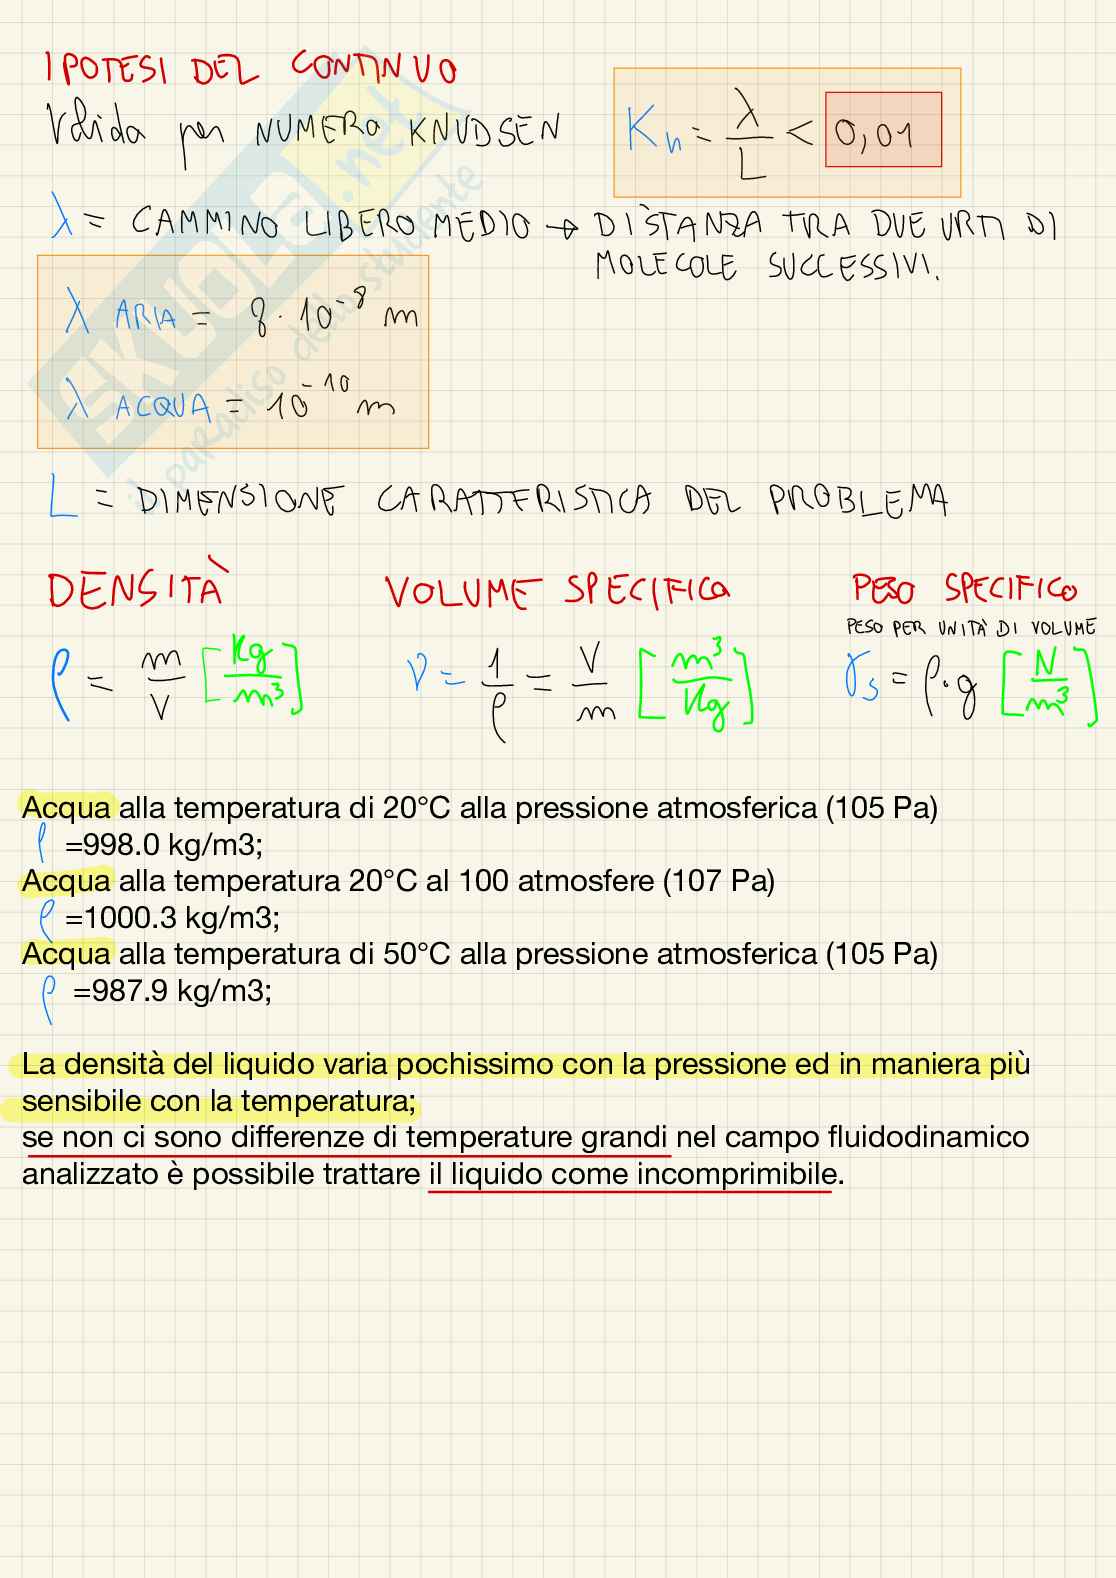 IPOTESI DEL CONTINUO
Valida per NUMERO KNUDSEN
Kn = λ / L < 0,01
λ = CAMMINO LIBERO MEDIO → DISTANZA TRA DUE URTI DI
MOLECOLE SUCCESSIVI.
λ ARIA = 8 · 10⁻⁸ m
λ ACQUA = 10⁻¹⁰ m
L = DIMENSIONE CARATTERISTICA DEL PROBLEMA
DENSITÀ VOLUME SPECIFICA PESO SPECIFICO
PESO PER UNITÀ DI VOLUME
ρ = m / V [Kg / m³] ν = 1 / ρ = V / m [m³ / Kg] γs = ρ · g [N / m³]
Acqua alla temperatura di 20°C alla pressione atmosferica (105 Pa)
ρ =998.0 kg/m3;
Acqua alla temperatura 20°C al 100 atmosfere (107 Pa)
ρ =1000.3 kg/m3;
Acqua alla temperatura di 50°C alla pressione atmosferica (105 Pa)
ρ =987.9 kg/m3;
La densità del liquido varia pochissimo con la pressione ed in maniera più
sensibile con la temperatura;
se non ci sono differenze di temperature grandi nel campo fluidodinamico
analizzato è possibile trattare il liquido come incomprimibile.
SKUOLA.net
il paradiso dello studente